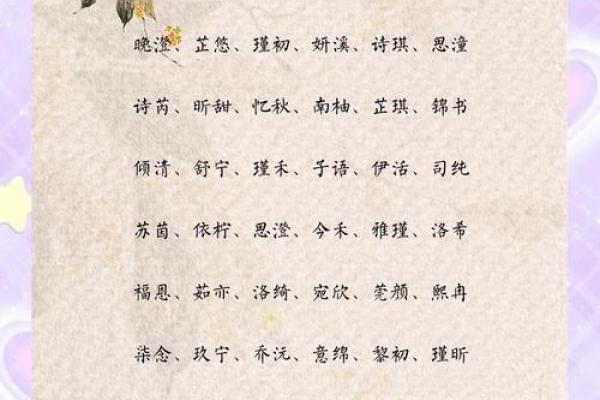 晚澄、芷悠、瑾初、妍溪、诗琪、思潼
诗芮、昕甜、忆秋、南柚、芷琪、锦书
倾清、舒宁、瑾禾、子语、伊活、司纯
苏茵、依柠、思澄、今禾、雅瑾、洛希
福恩、茹亦、洛绮、宛欣、莞颜、熙冉
柒念、玖宁、乔沅、意绵、黎初、瑾昕